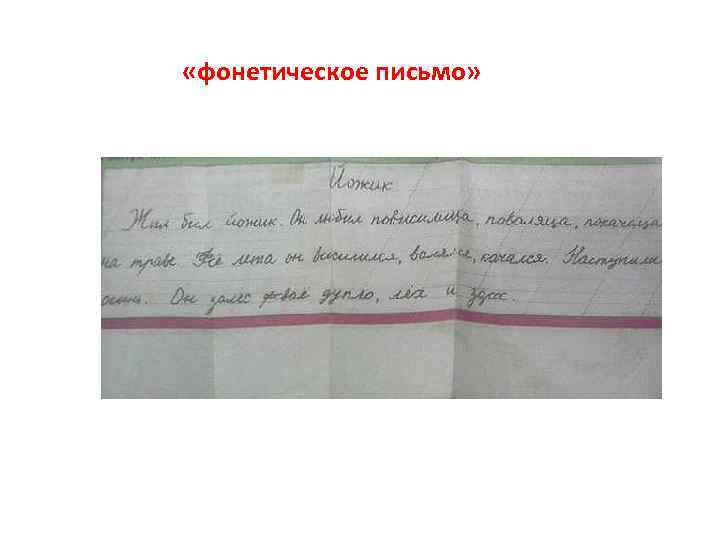 «фонетическое письмо»
Йожик
Жил бил йожик. Он любил повисилица, поваляца, покачаца
на траве. Всё лета он висилился, валялся, качался. Наступили
осинь. Он залес фваё дупло, лёх и здох.